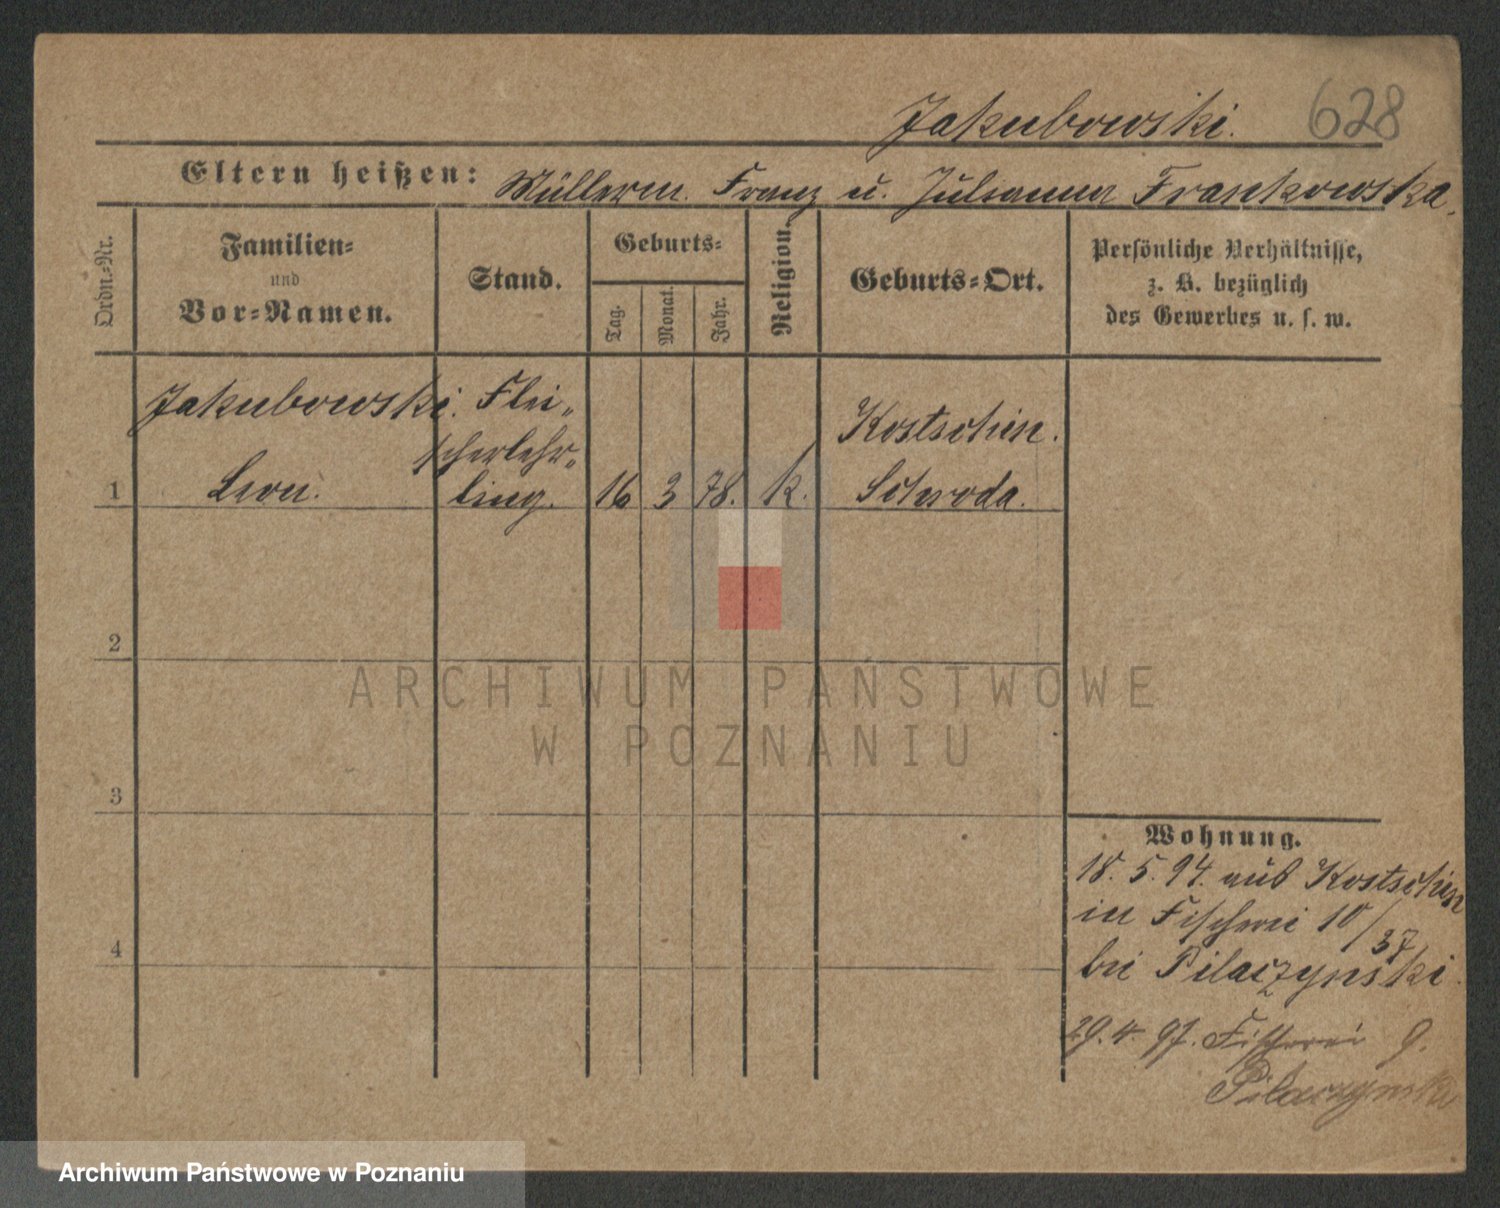 Jakubowski. 628
Eltern heißen: Müllerm. Franz u. Julianna Frankowska.
Ordn.-Nr.
Familien-
und
Vor-Namen.
Stand.
Geburts-
Tag.
Monat.
Jahr.
Religion.
Geburts-Ort.
Persönliche Verhältnisse,
z. B. bezüglich
des Gewerbes u. s. w.
Jakubowski. Flei-
scherlehr-
Kostschin.
1 Leon. ling. 16 3 78. k. Schroda.
2
3
4
Wohnung.
18. 5. 94. aus Kostschin
in Fischerei 10/37
bei Pilaczynski.
29. 4. 97. Fischerei 9.
Pilaczynski
ARCHIWUM PAŃSTWOWE
W POZNANIU
Archiwum Państwowe w Poznaniu